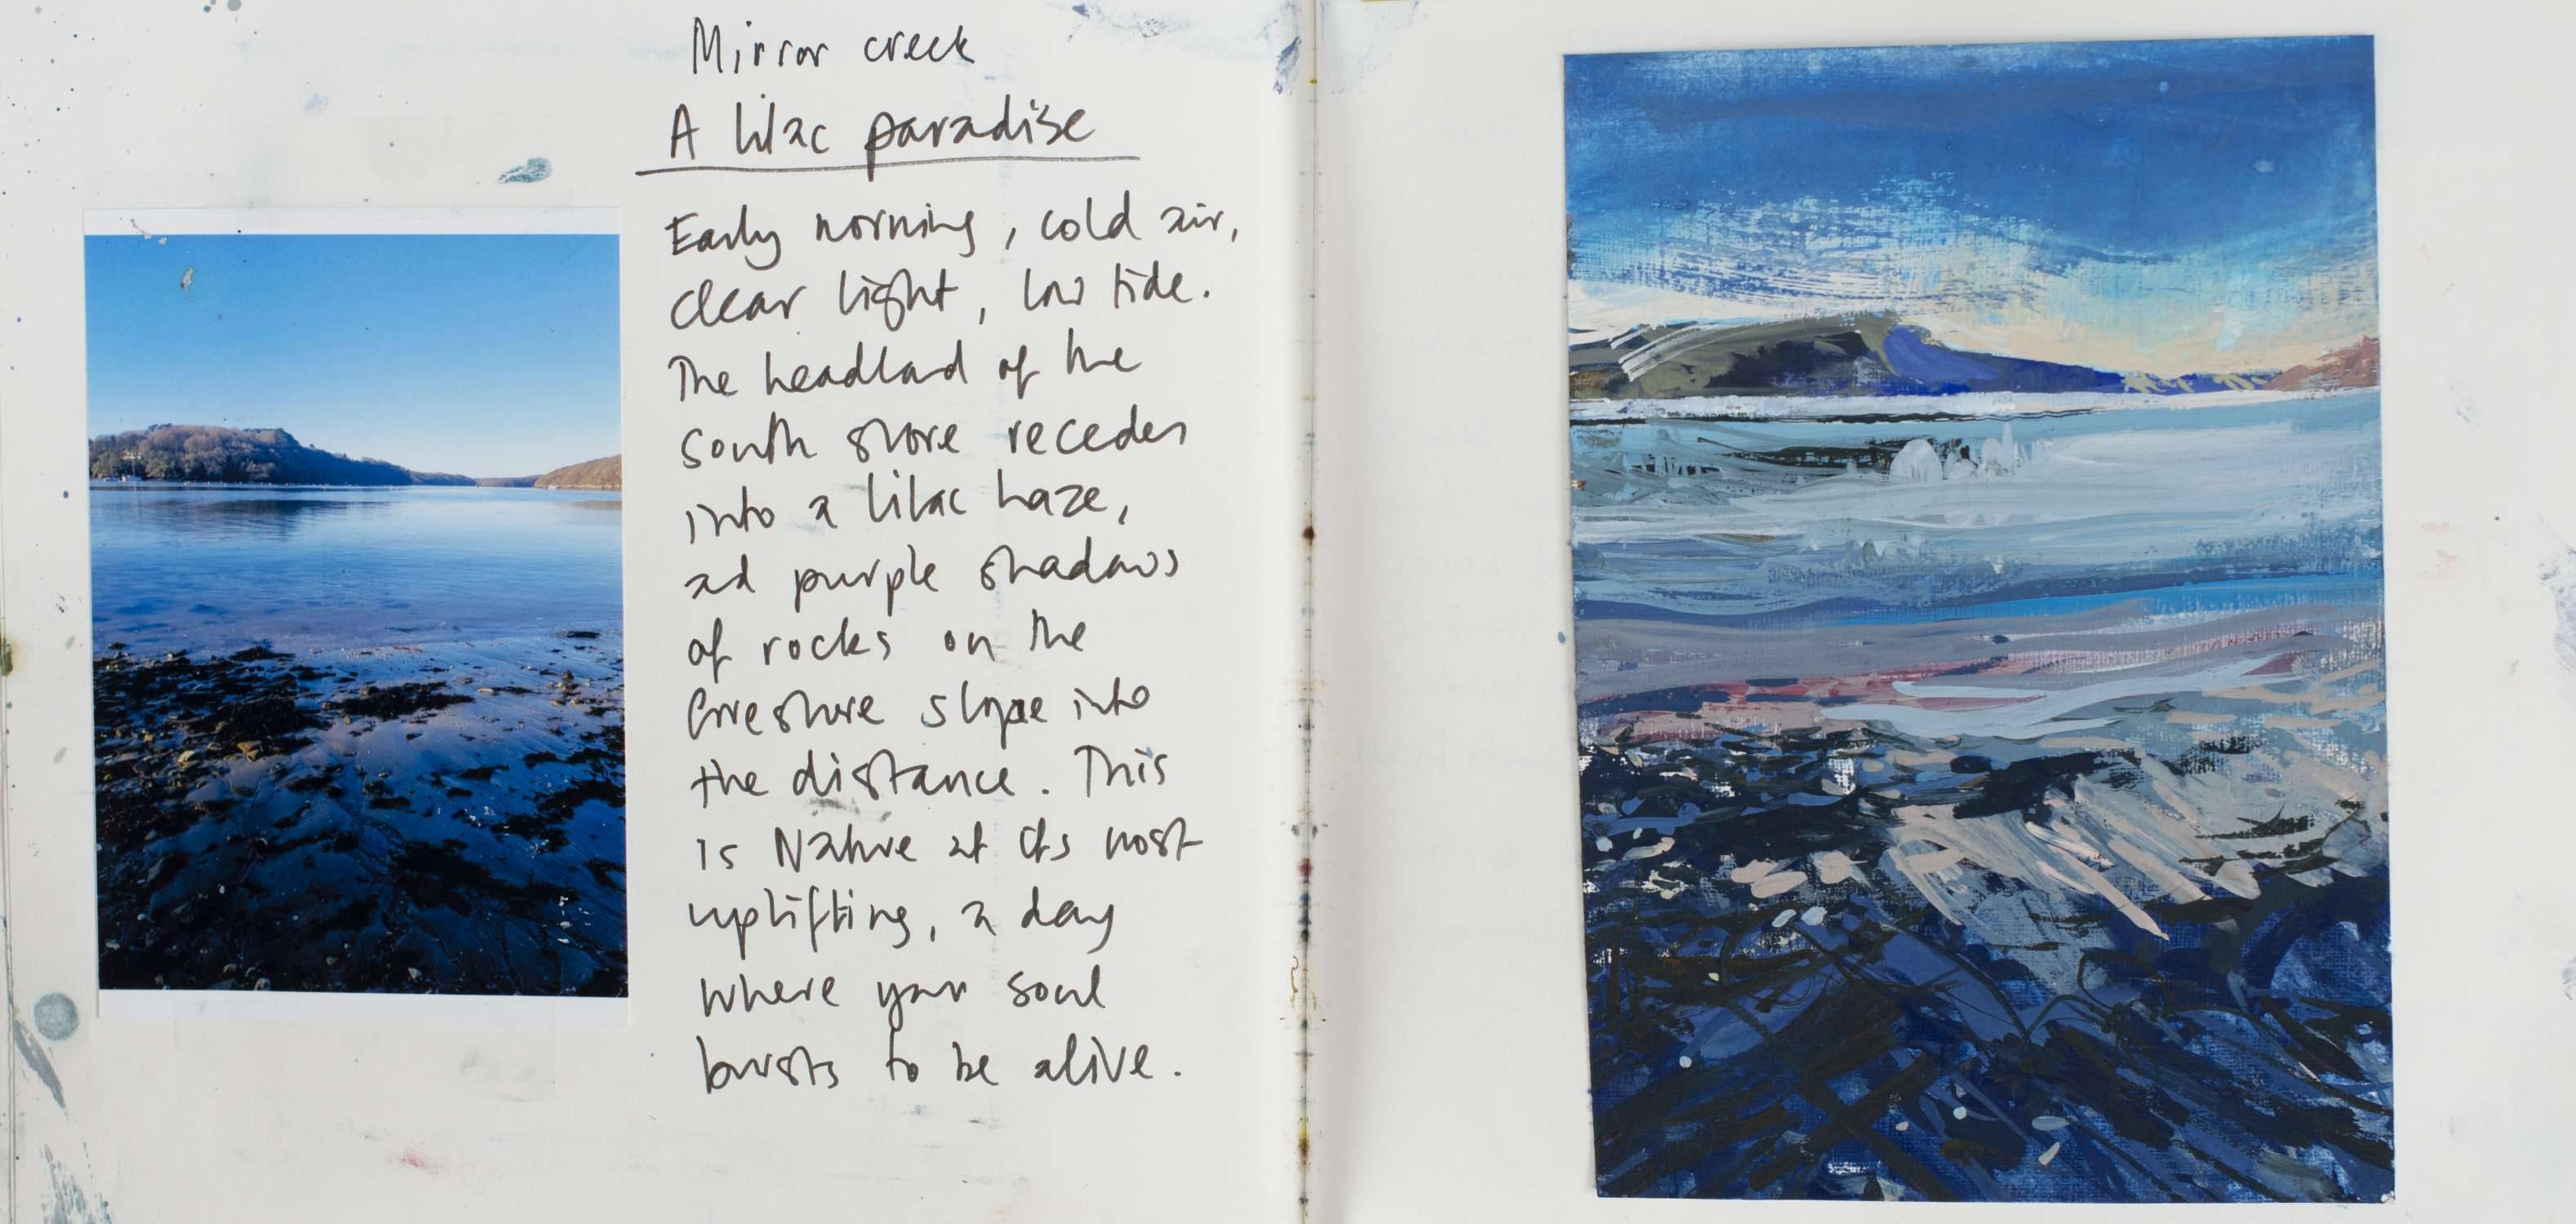 Mirror creek
A lilac paradise
Early morning, cold air,
clear light, low tide.
The headland of the
south shore recedes
into a lilac haze,
and purple shadows
of rocks on the
foreshore slope into
the distance. This
is Nature at its most
uplifting, a day
where your soul
bursts to be alive.